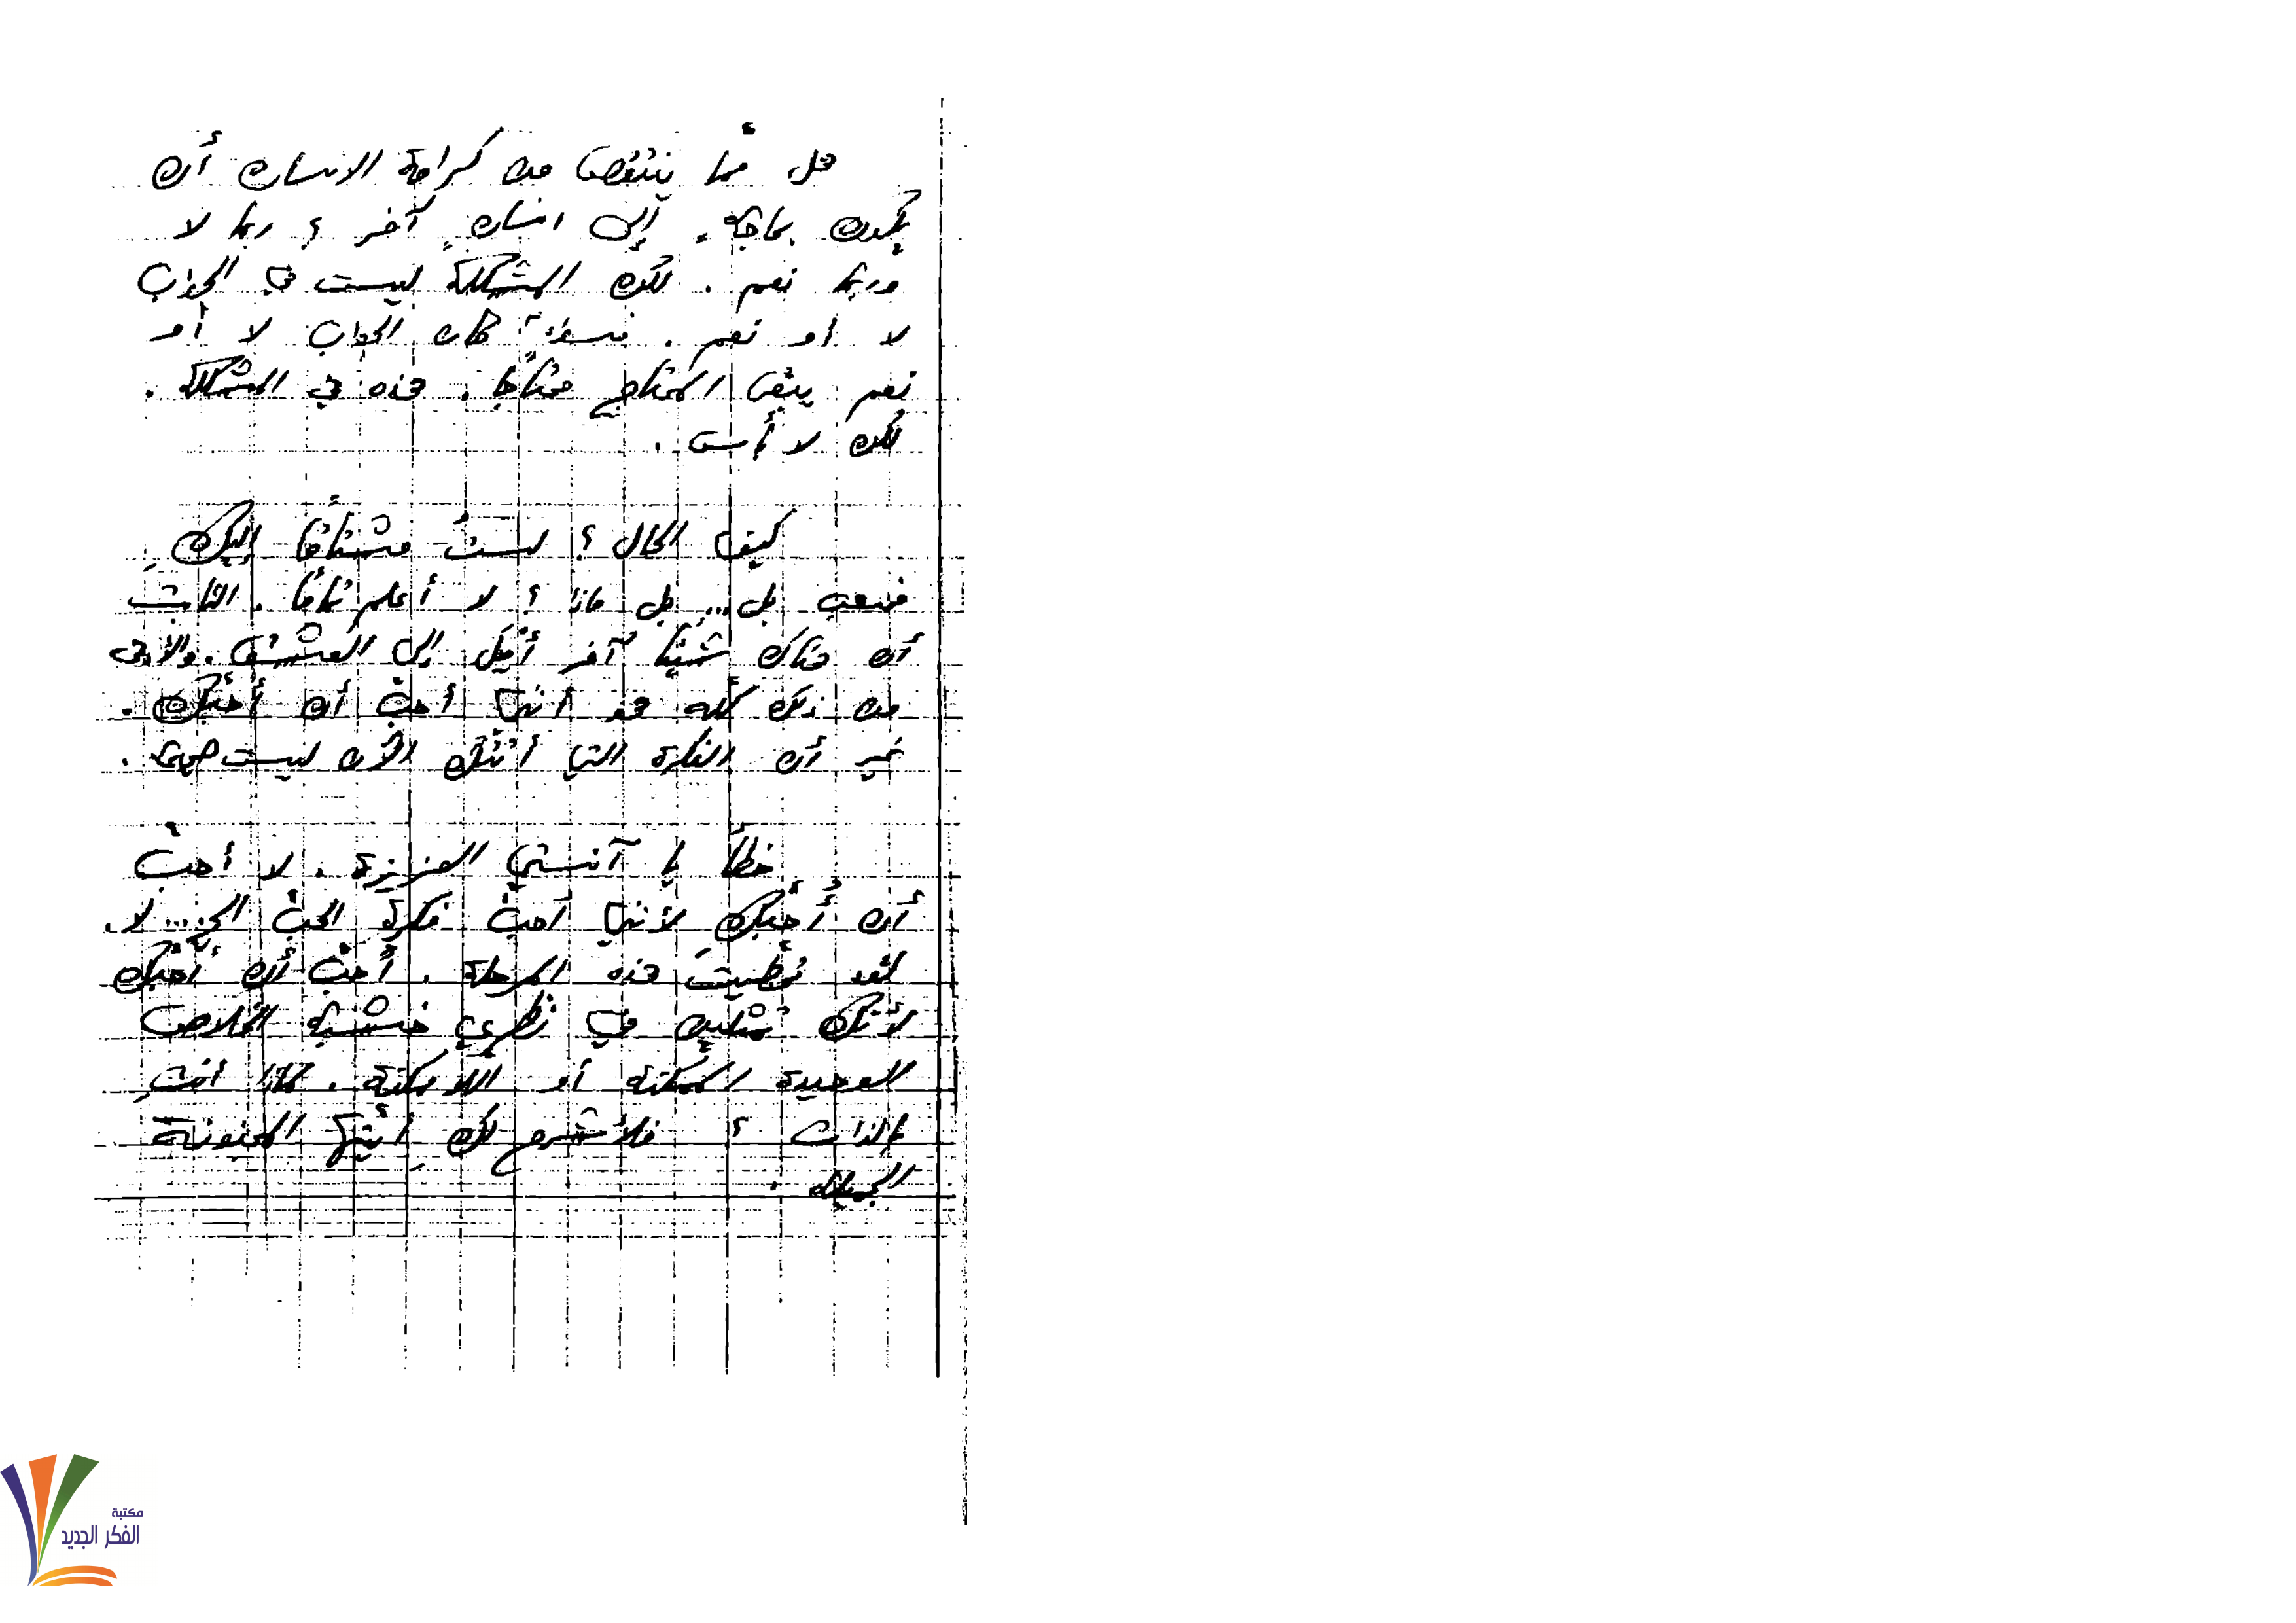 هل ممّا ينتقص من كرامة الانسان أن
يكون بحاجة إلى انسانٍ آخر ؟ ربما لا
وربما نعم . لكن المشكلة ليست في الجواب
لا أو نعم . فسواءٌ كان الجواب لا أو
نعم يبقى المحتاج محتاجًا . هذه هي المشكلة .
لكن لا بأس .
كيف الحال ؟ لستُ مشتاقًا إليكِ
فحسب بل ... بل ماذا ؟ لا أعلم تمامًا . الثابت
أن هناك شيئًا آخر أُضيف إلى العشق . والأدهى
من ذلك كلّه هو أنني أحبّ أن أُحبّكِ .
غير أن الفكرة التي أتتكِ الآن ليست صحيحة .
خطأ يا آنستي العزيزة . لا أحبّ
أن أُحبّكِ لأنني أحبّ فكرة الحبّ الخ... لا .
لقد تخطّيتُ هذه المرحلة . أُحبّ أن أُحبّكِ
لأنّكِ تمثّلين في نظري خشبة الخلاص
الوحيدة الممكنة أو اللاممكنة . لماذا أنتِ
بالذات ؟ فلأشرح لكِ أيّتها المجنونة
الجميلة .
مكتبة
الفكر الجديد